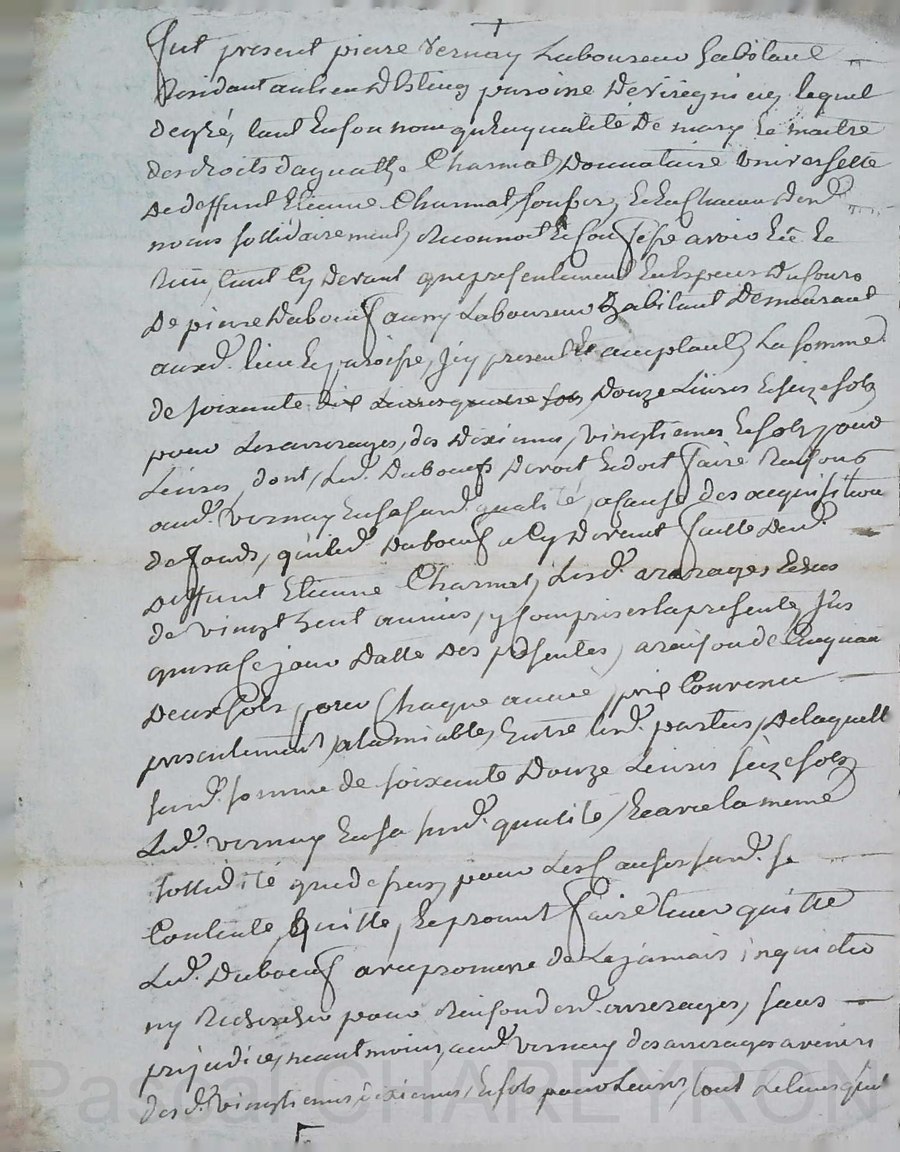 +
Fut present pierre Vernay Laboureur habitant
Residant au lieu paroisse de lequel
de gré, tant En son nom qu'En qualité De mary Et maitre
des droits d'agathe Charmat, Donnataire Universelle
De deffunt Etienne Charmat, Et Chacun D'eux
sollidairement, Reconnoit Et Confesse avoir Eu Et
Reçu, tant Cy Devant que presentement En Especes Du Cours
De pierre Duboeuf aussy Laboureur habitant Demeurant
auxd. lieu Et paroisse, Icy present Et acceptant, La somme
de soixante dix Livres quatre sols, Douze Livres Et seize sols
pour Les arrerages, des Dixiemes, Vingtiemes Et sols pour
Livres, dont, Led. Duboeuf Devoit Et doit faire Raisons
aud. Vernay En sa surd. qualité, a Cause des acquisitions
de fonds, que led. Duboeuf a Cy Devant faitte Dud.
Deffunt Etienne Charmat, Lesd. arrerages,
de vingt huit années, y Comprises la presente, Jus
qu'a Ce jour Datte Des presentes, a raison de Cinquante
Deux sols, pour Chaque année, prix Convenu
presentement, a l'amiable, Entre lesd. parties, De laquelle
surd. somme de soixante Douze Livres seize sols
Led. Vernay En sa surd. qualité, Et avec la meme
sollidité que dessus, pour Les Causes surd. se
Contente, quitte, Et promet faire tenir quitte
Led. Duboeuf avec promesse de Le jamais inquieter
ny Rechercher pour Raison desd. arrerages, sans
prejudice, neantmoins, aud. Vernay des arrerages avenirs
des d. Vingtiemes, dixiemes, Et sols pour Livres, tout
Pascal CHAREYRON